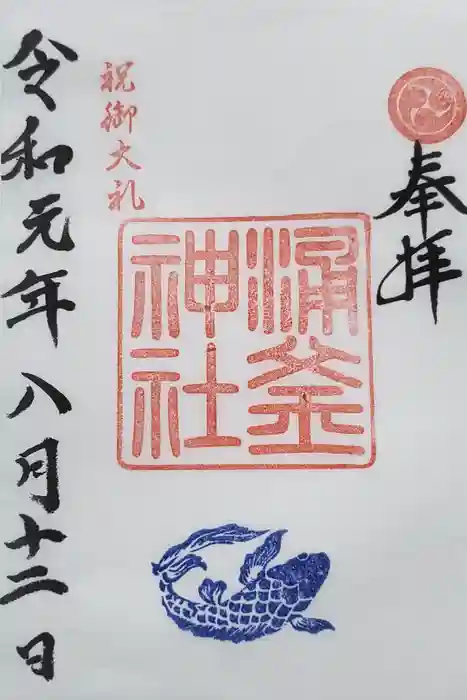 奉拝
涌釜
神社
祝御大礼
令和元年八月十二日